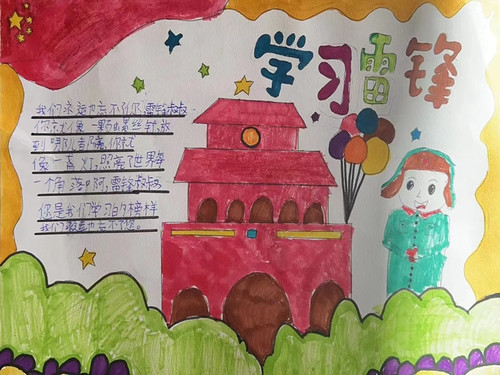 学习雷锋
我们永远也忘不了你,雷锋叔叔
你就像一颗螺丝钉,放
到哪儿言哪你就
像一盏灯,照亮了世界每
一个角落啊,雷锋叔叔
你是我们学习的榜样
我们永远也忘不了您。